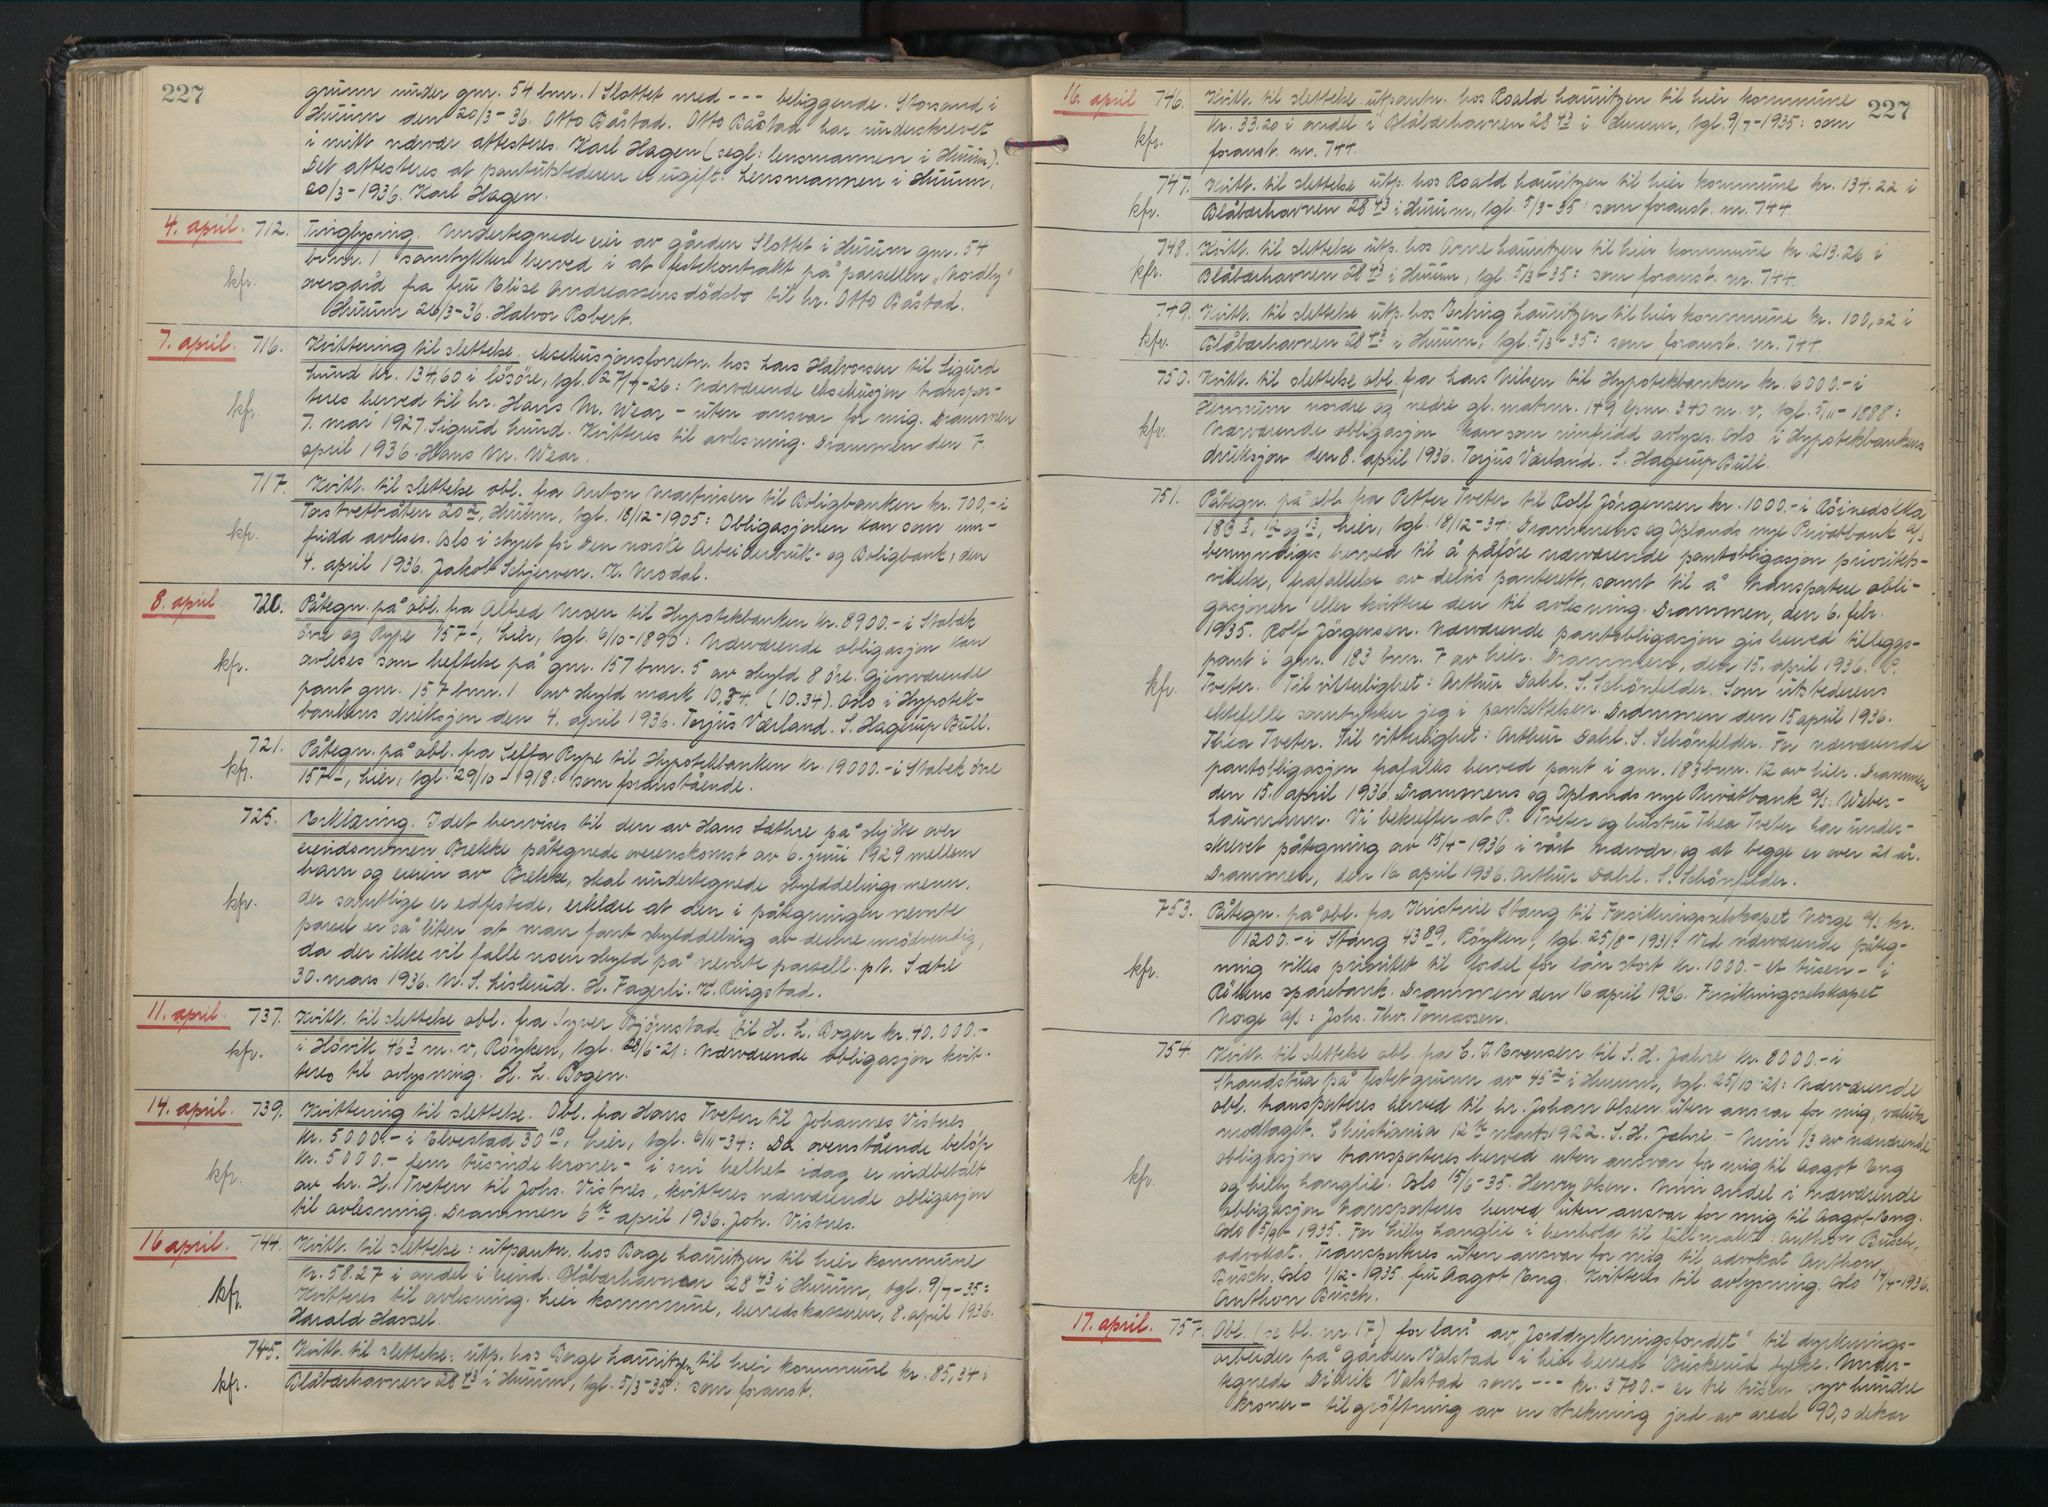 227
grunn under gnr. 54 bnr. 1 Slottet med --- beliggende. Storsand i
Hurum den 20/3-36. Otto Båstad. Otto Båstad har underskrevet
i mitt nærvær attesteres. Karl Hagen (segl: lensmannen i Hurum).
Det attesteres at pantutstederen er ugift: Lensmannen i Hurum,
20/3-1936. Karl Hagen.
4. april. 712. Tinglysing. Undertegnede eier av gården Slottet i Hurum gnr. 54
bnr. 1 samtykker herved i at festekontrakt på parsellen "Nordly"
kfr. overgård fra fru Elise Andreassens dödsbo til hr. Otto Båstad.
Hurum 26/3-36. Halvor Robert.
7. april. 716. Kvittering til slettelse. eksekusjonsforretn. hos Lars Halvorsen til Sigurd
Lund kr. 134,60 i lösöre, tgl. 27/4-26: Nærværende eksekusjon transpor-
kfr. teres herved til hr. Hans M. Wear - uten ansvar for mig. Drammen
7. mai 1927. Sigurd Lund. Kvitteres til avlesning. Drammen den 7
april 1936. Hans M. Wear.
717. Kvitt. til slettelse obl. fra Anton Martinsen til Boligbanken kr. 700,- i
Torstvetbråten 20 2, Hurum, tgl. 18/12-1905: Obligasjonen kan som inn-
kfr. fridd avleses. Oslo i styret for Den norske Arbeiderbruk- og Boligbank, den
4. april 1936. Jakob Schjerven. K. Modal.
8. april 720. Påtegn. på obl. fra Alfred Moen til Hypotekbanken kr. 8900.- i Stabek
övre og Rype 157-, hier, tgl. 6/10-1890: Nærværende obligasjon kan
kfr. avleses som heftelse på gnr. 157 bnr. 5 av skyld 8 öre. Gjenværende
pant gnr. 157 bnr. 1 av skyld mark 10,34. (10.34). Oslo i Hypotek-
bankens direksjon den 4. april 1936. Torjus Værland. S. Hagerup Bull.
721. Påtegn. på obl. fra Leffa Rype til Hypotekbanken kr. 19000.- i Stabek övre
kfr. 157-, hier, tgl. 29/10-1918: som foranstående.
725. Erklæring. I det henvises til den av Hans Sæthre på skjöte over
eiendommen Brekke påtegnede overenskomst av 6. juni 1929 mellem
ham og eieren av Brekke, skal undertegnede skylddelingsmenn,
kfr. der samtlige er edfestede, erklære at den i påtegningen nevnte
parsel er så liten at man fant skylddeling av denne unödvendig,
da der ikke vil falle noen skyld på nevnte parsell. pt. Sætre
30. mars 1936. N. S. Lislerud. H. Fagerli. K. Ringstad.
11. april. 737. Kvitt. til slettelse obl. fra Syver Björnstad til H. L. Bogen kr. 40.000.-
kfr. i Hövik 46 3 m. v, Röyken, tgl. 28/6-21: Nærværende obligasjon kvit-
teres til avlysning. H. L. Bogen.
14. april. 739. Kvittering til slettelse. Obl. fra Hans Tveten til Johannes Vistnes
kr. 5000.- i Elvestad 30 10, hier, tgl. 6/11-34: Da ovenstående belöp
kr. 5000.- fem tusinde kroner- i sin helhet idag er indbetalt
kfr. av hr. H. Tveten til Johs. Vistnes, kvitteres nærværende obligasjon
til avlesning. Drammen 6te april 1936. Joh. Vistnes.
16 april. 744. Kvitt. til slettelse: utpantn. hos Borge Lauritzen til hier kommune
kr. 58.27 i andel i eiend. Blåbærhavnen 28 43 i Hurum, tgl. 9/7-35:
kfr. Kvitteres til avlesning. Lier kommune, herredskasseren, 8. april 1936.
Harald Hassel.
745. Kvitt. til slettelse: utp. hos Borge Lauritzen til hier kommune kr. 85,34 i
kfr. Blåbærhavnen 28 43 i Hurum, tgl. 5/3-35: som foranst.
227
16. april 746. Kvitt. til slettelse utpantn. hos Roald Lauritzen til hier kommune
kr. 33.20 i andel i Blåbærhavnen 28 43 i Hurum, tgl. 9/7-1935: som
kfr. foranst. nr. 744.
747. Kvitt. til slettelse utp. hos Roald Lauritzen til hier kommune kr. 134.22 i
kfr. Blåbærhavnen 28 43 i Hurum, tgl. 5/3-35: som foranst. nr. 744.
748. Kvitt. til slettelse utp. hos Arne Lauritzen til hier kommune kr. 213.26 i
kfr. Blåbærhavnen 28 43 i Hurum, tgl. 5/3-35: som foranst. nr. 744.
749. Kvitt. til slettelse utp. hos Erling Lauritzen til hier kommune kr. 100,62 i
kfr. Blåbærhavnen 28 43 i Hurum, tgl. 5/3-35: som foranst. nr. 744.
750. Kvitt. til slettelse obl. fra Lars Nilsen til Hypotekbanken kr. 6000.- i
Hennum nordre og nedre gl. matrnr. 149 lpnr. 340 m. v, tgl. 5/11-1888:
kfr. Nærværende obligasjon kan som innfridd avlyses. Oslo i Hypotekbankens
direksjon den 8. april 1936. Torjus Værland. S. Hagerup Bull.
751. Påtegn. på obl. fra Petter Tveter til Rolf Jörgensen kr. 1000.- i
183 5, 12 og 13, hier, tgl. 18/12-34: Drammens og Oplands nye Privatbank A/S
bemyndiges herved til å påföre nærværende pantobligasjon prioritets-
vikelse, frafallelse av delvis panterett, samt til å transportere obli-
gasjonen eller kvittere den til avlesning. Drammen, den 6. febr.
1935. Rolf Jörgensen. Nærværende pantobligasjon gis herved tilleggs-
pant i gnr. 183 bnr. 7 av hier. Drammen, den 15. april 1936. P.
kfr. Tveter. Til vitterlighet: Arthur Dahl. S. Schönfelder. Som utstederens
ektefelle samtykker jeg i pantsettelsen. Drammen den 15 april 1936.
Thea Tveter. Til vitterlighet: Arthur Dahl. S. Schönfelder. For nærværende
pantobligasjon frafalles herved pant i gnr. 183 bnr. 12 av hier. Drammen
den 15. april 1936. Drammens og Oplands nye Privatbank A/S. Weber-
Laumann. Vi bekrefter at P. Tveter og hustru Thea Tveter har under-
skrevet påtegning av 15/4-1936 i vårt nærvær, og at begge er over 21 år.
Drammen, den 16 april 1936. Arthur Dahl. S. Schönfelder.
753. Påtegn. på obl. fra Kristine Stang til Forsikringsselskapet Norge A/S kr.
1200.- i Stang 43 89, Röyken, tgl. 25/8-1931: Ved nærværende påteg-
kfr. ning vikes prioritet til fordel for lån stort kr. 1000.- et tusen - i
Rökens sparebank. Drammen den 16 april 1936. Forsikringsselskapet
Norge A/S: Johs. Thv. Tomassen.
754. Kvitt. til slettelse obl. fra C. J. Evensen til S. H. Jahre kr. 8000.- i
Strandstua på festet grunn av 45 2 i Hurum, tgl. 25/10-21: Nærværende
obl. transporteres herved til hr. Johan Olsen uten ansvar for mig, valuta
modtaget. Christiania 12te marts 1922. S. H. Jahre. - Min 1/3 av nærværende
kfr. obligasjon transporteres herved uten ansvar for mig til Aagot Eng
og Lilly Langlie. Oslo 15/6-35. Henry Olsen. Min andel i nærværende
obligasjon transporteres herved uten ansvar for mig til Aagot Eng.
Oslo 1935. For Lilly Langlie i henhold til fullmakt: Anthon Busch,
advokat. Transporteres uten ansvar for mig til advokat Anthon
Busch. Oslo 1/12-1935. fru Aagot Eng. Kvitteres til avlysning. Oslo 14/4-1936.
Anthon Busch.
17. april. 757. Obl. (se bl. nr. 17) for lån av "Jorddyrkningsfondet" til dyrknings-
arbeider på gården Valstad i hier herred Buskerud fylke. Under-
tegnede Didrik Valstad som --- kr. 3700.- er tre tusen syv hundre
kroner- til gröftning av en strekning jord av areal 90,0 dekar